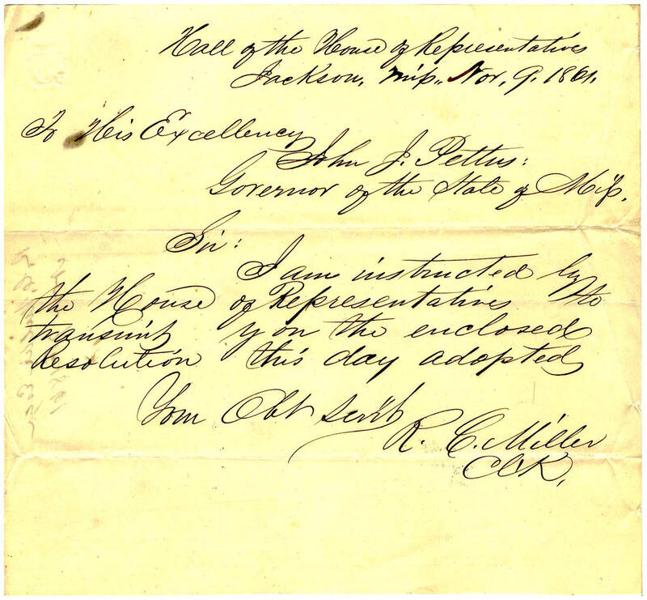 Hall of the House of Representatives
Jackson, Miſs., Nov, 9. 1861.
To His Excellency
John J. Pettus:
Governor of the State of Miſs.
Sir:
I am instructed by
the House of Representatives to
transmit you the enclosed
Resolution this day adopted
Your Obt Servt
R. C. Miller
Clk,